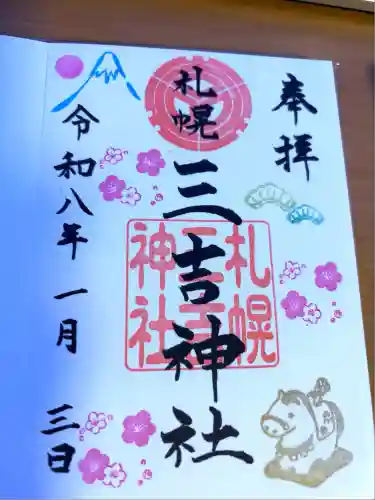 奉拝
札幌
三吉神社
札幌
三吉
神社
令和八年一月三日